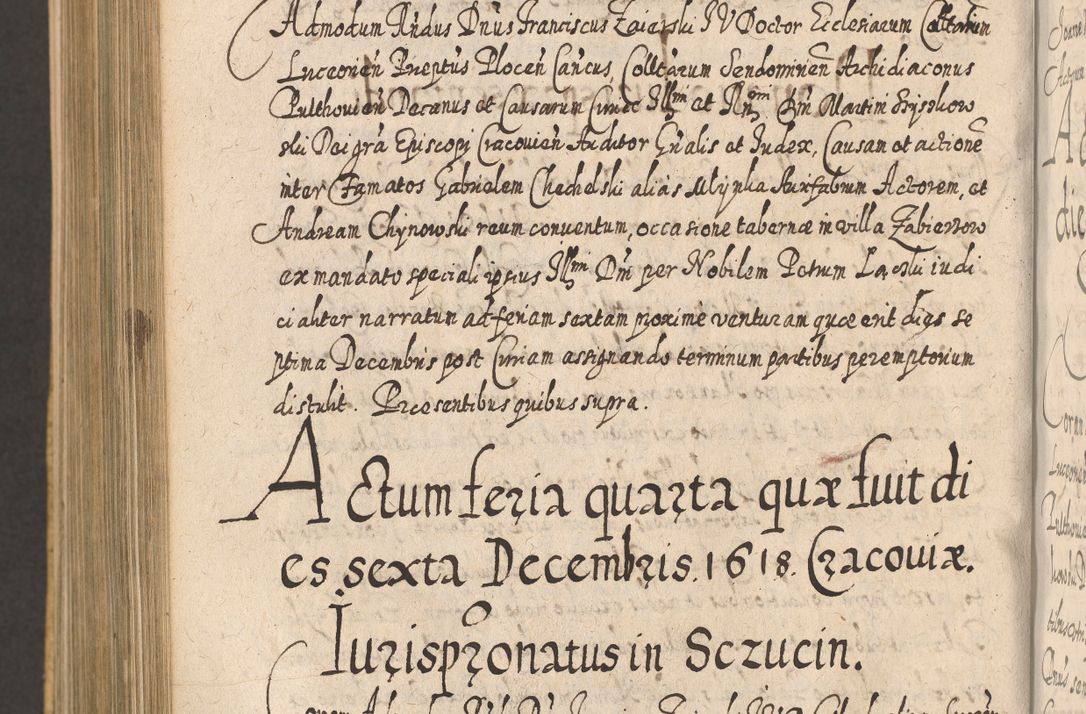 Admodum Rndus Dnus Franciscus Zaierski IV Doctor Ecclesiarum Colltarum
Luceorien Preptus Plocen Cancus, Colltarum Sendomirien Archidiaconus
Pulthovien Decanus et Causarum Curiae Illmi et Rmi Dni Martini Szyszkow
ski Dei gra Episcopi Cracovien Auditor Gnalis et Iudex, Causam et actione
inter Famatos Gabrielem Chechelski alias Mlynka Aurifabrum Actorem, et
Andream Chynowski reum conventum, occasione tabernæ in villa Zabierzow
ex mandato speciali ipsius Illmi Dni per Nobilem Petrum Lącki iudi
cialiter narratum ad feriam sextam proxime venturam quæ erit dies se
ptima Decembris post Curiam assignando terminum partibus peremptorium
distulit. Præsentibus quibus supra.
Actum feria quarta quæ fuit di
es sexta Decembris. 1618. Cracoviæ.
Iurispronatus in Sczucin.